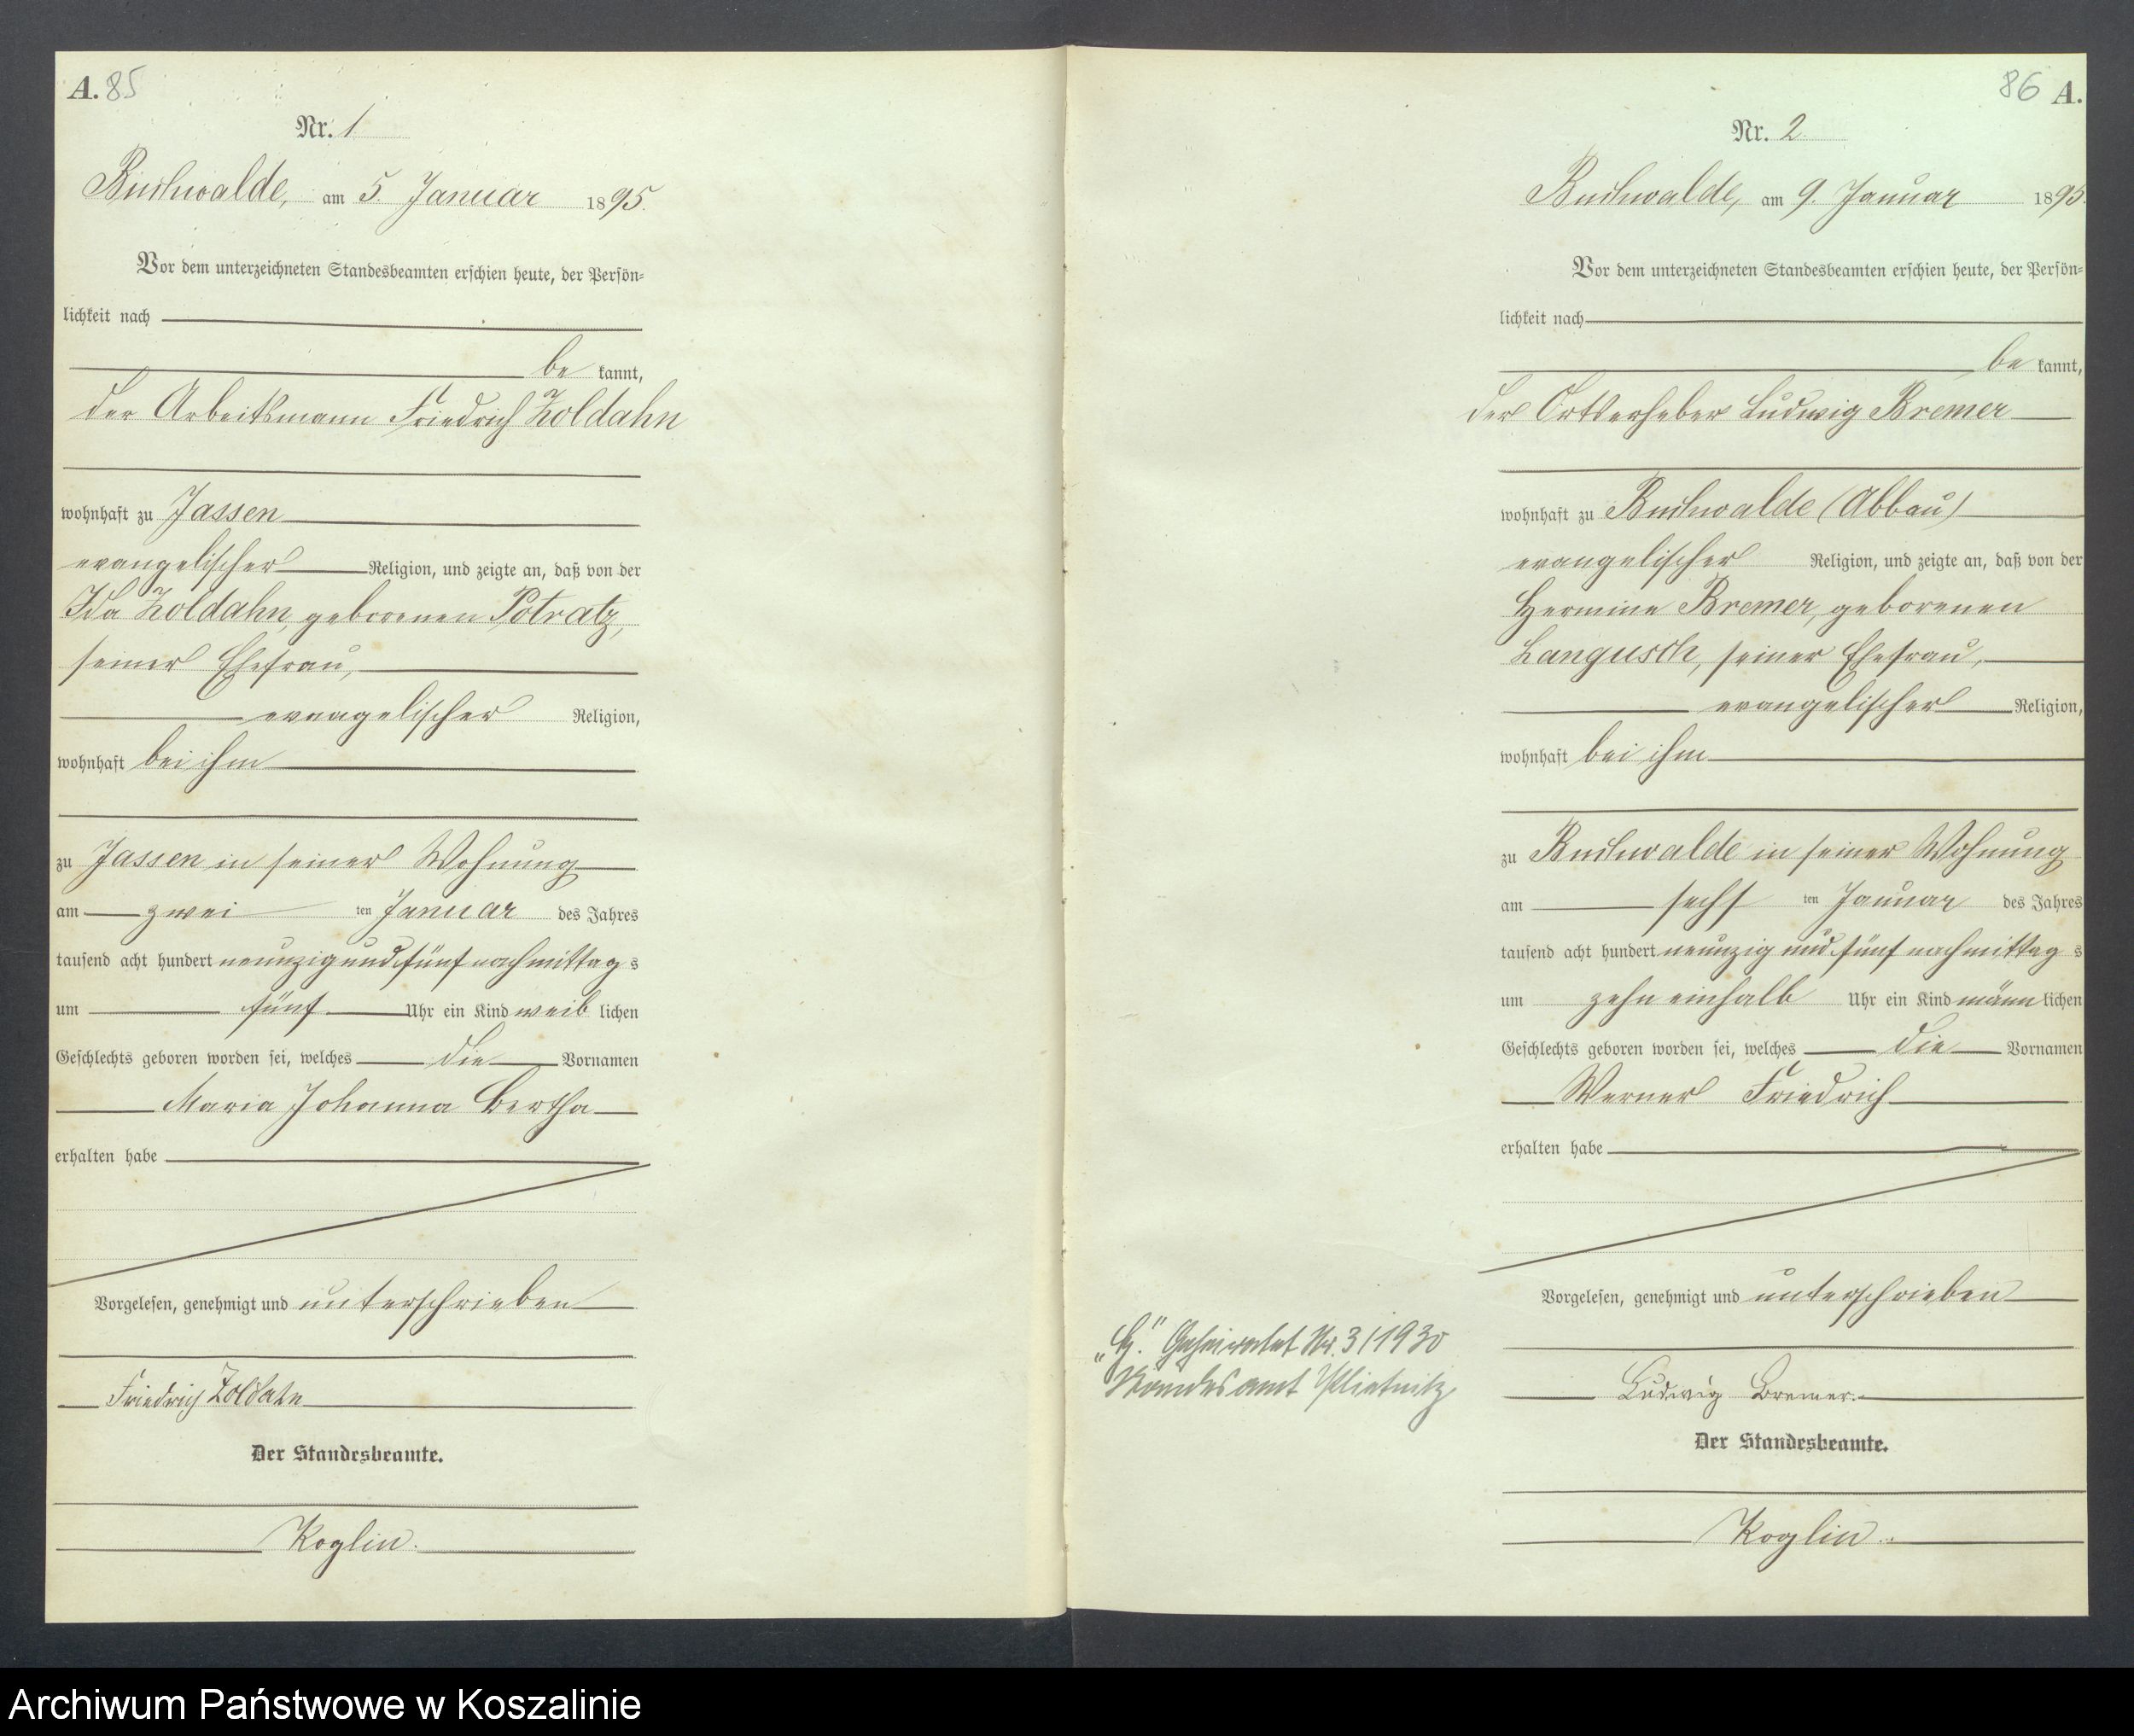 A. 85
Nr. 1
Buchwalde, am 5. Januar 1895.
Vor dem unterzeichneten Standesbeamten erschien heute, der Persön=
lichkeit nach
be kannt,
der Arbeitsmann Friedrich Zoldahn
wohnhaft zu Jassen
evangelischer Religion, und zeigte an, daß von der
Ida Zoldahn, geborenen Potratz,
seiner Ehefrau,
evangelischer Religion,
wohnhaft bei ihm
zu Jassen in seiner Wohnung
am zwei ten Januar des Jahres
tausend acht hundert neunzig und fünf nachmittag s
um fünf Uhr ein Kind weib lichen
Geschlechts geboren worden sei, welches die Vornamen
Maria Johanna Bertha
erhalten habe
Vorgelesen, genehmigt und unterschrieben
Friedrich Zoldahn
Der Standesbeamte.
Koglin.
86 A.
Nr. 2
Buchwalde, am 9. Januar 1895.
Vor dem unterzeichneten Standesbeamten erschien heute, der Persön=
lichkeit nach
be kannt,
der Ortserheber Ludwig Bremer
wohnhaft zu Buchwalde (Abbau)
evangelischer Religion, und zeigte an, daß von der
Hermine Bremer, geborenen
Langusch, seiner Ehefrau,
evangelischer Religion,
wohnhaft bei ihm
zu Buchwalde in seiner Wohnung
am sechs ten Januar des Jahres
tausend acht hundert neunzig und fünf nachmittag s
um zehn einhalb Uhr ein Kind männ lichen
Geschlechts geboren worden sei, welches die Vornamen
Werner Friedrich
erhalten habe
Vorgelesen, genehmigt und unterschrieben
Ludwig Bremer.
Der Standesbeamte.
Koglin.
Geheiratet Nr. 3/1930
Standesamt Plietnitz
Archiwum Państwowe w Koszalinie